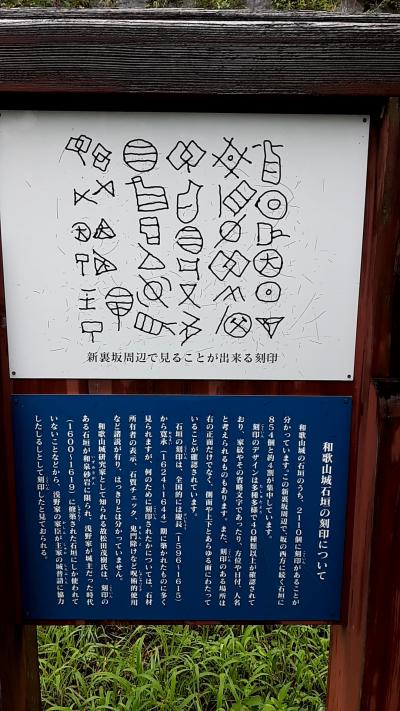 新裏坂周辺で見ることが出来る刻印
和歌山城石垣の刻印について
和歌山城の石垣のうち、2110個に刻印があることが
分かっています。この新裏坂周辺で、坂の西方に続く石垣に
854個と約4割が集中しています。
刻印のデザインは多種多様で40種類以上が確認されて
おり、家紋やその省略文字であったり、方位や日付、人名
と考えられるものもあります。また、刻印のある場所は
石の正面だけでなく、側面や上下とあらゆる面にわたって
いることが確認されています。
石垣の刻印は、全国的には慶長(1596~1615)
から寛永(1624~1644)期に築かれたものに多く
見られますが、何のために刻印されたかについては、石材
所有者の表示、石質チェック、鬼門除けなど呪術的使用
など諸説が有り、はっきりとは分かっていません。
和歌山城研究家として知られる故松田茂樹氏は、刻印の
ある石垣が和泉砂岩に限られ、浅野家が城主だった時代
(1600~1619)に修築された石垣にしか使われて
いないことなどから、浅野家の家臣が主家の城普請に協力
したしるしとして刻印したと見ておられる。